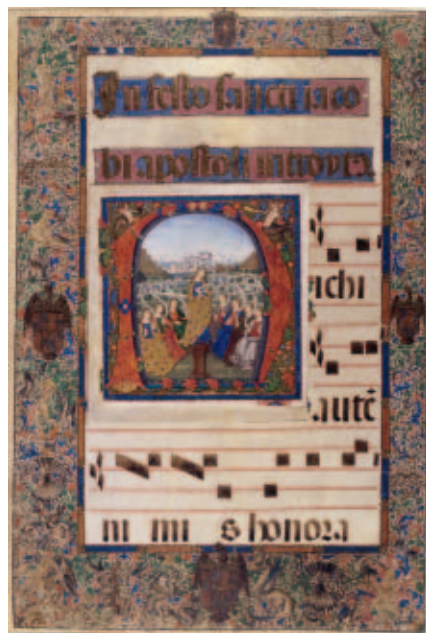 In festo sancti iaco
bi apostoli introyta
ichi
autē
ni mi s honora